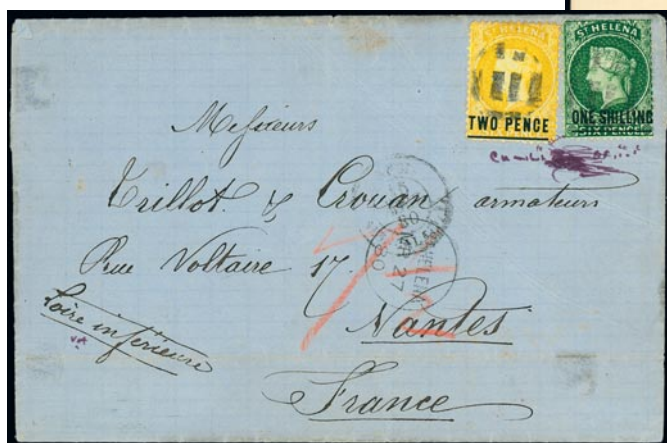 ST HELENA
TWO PENCE
ST HELENA
ONE SHILLING
SIX PENCE
Messieurs
Trillot & Crouan armateurs
Rue Voltaire 17.
Nantes
Loire inférieure
France
HELENA
27
80